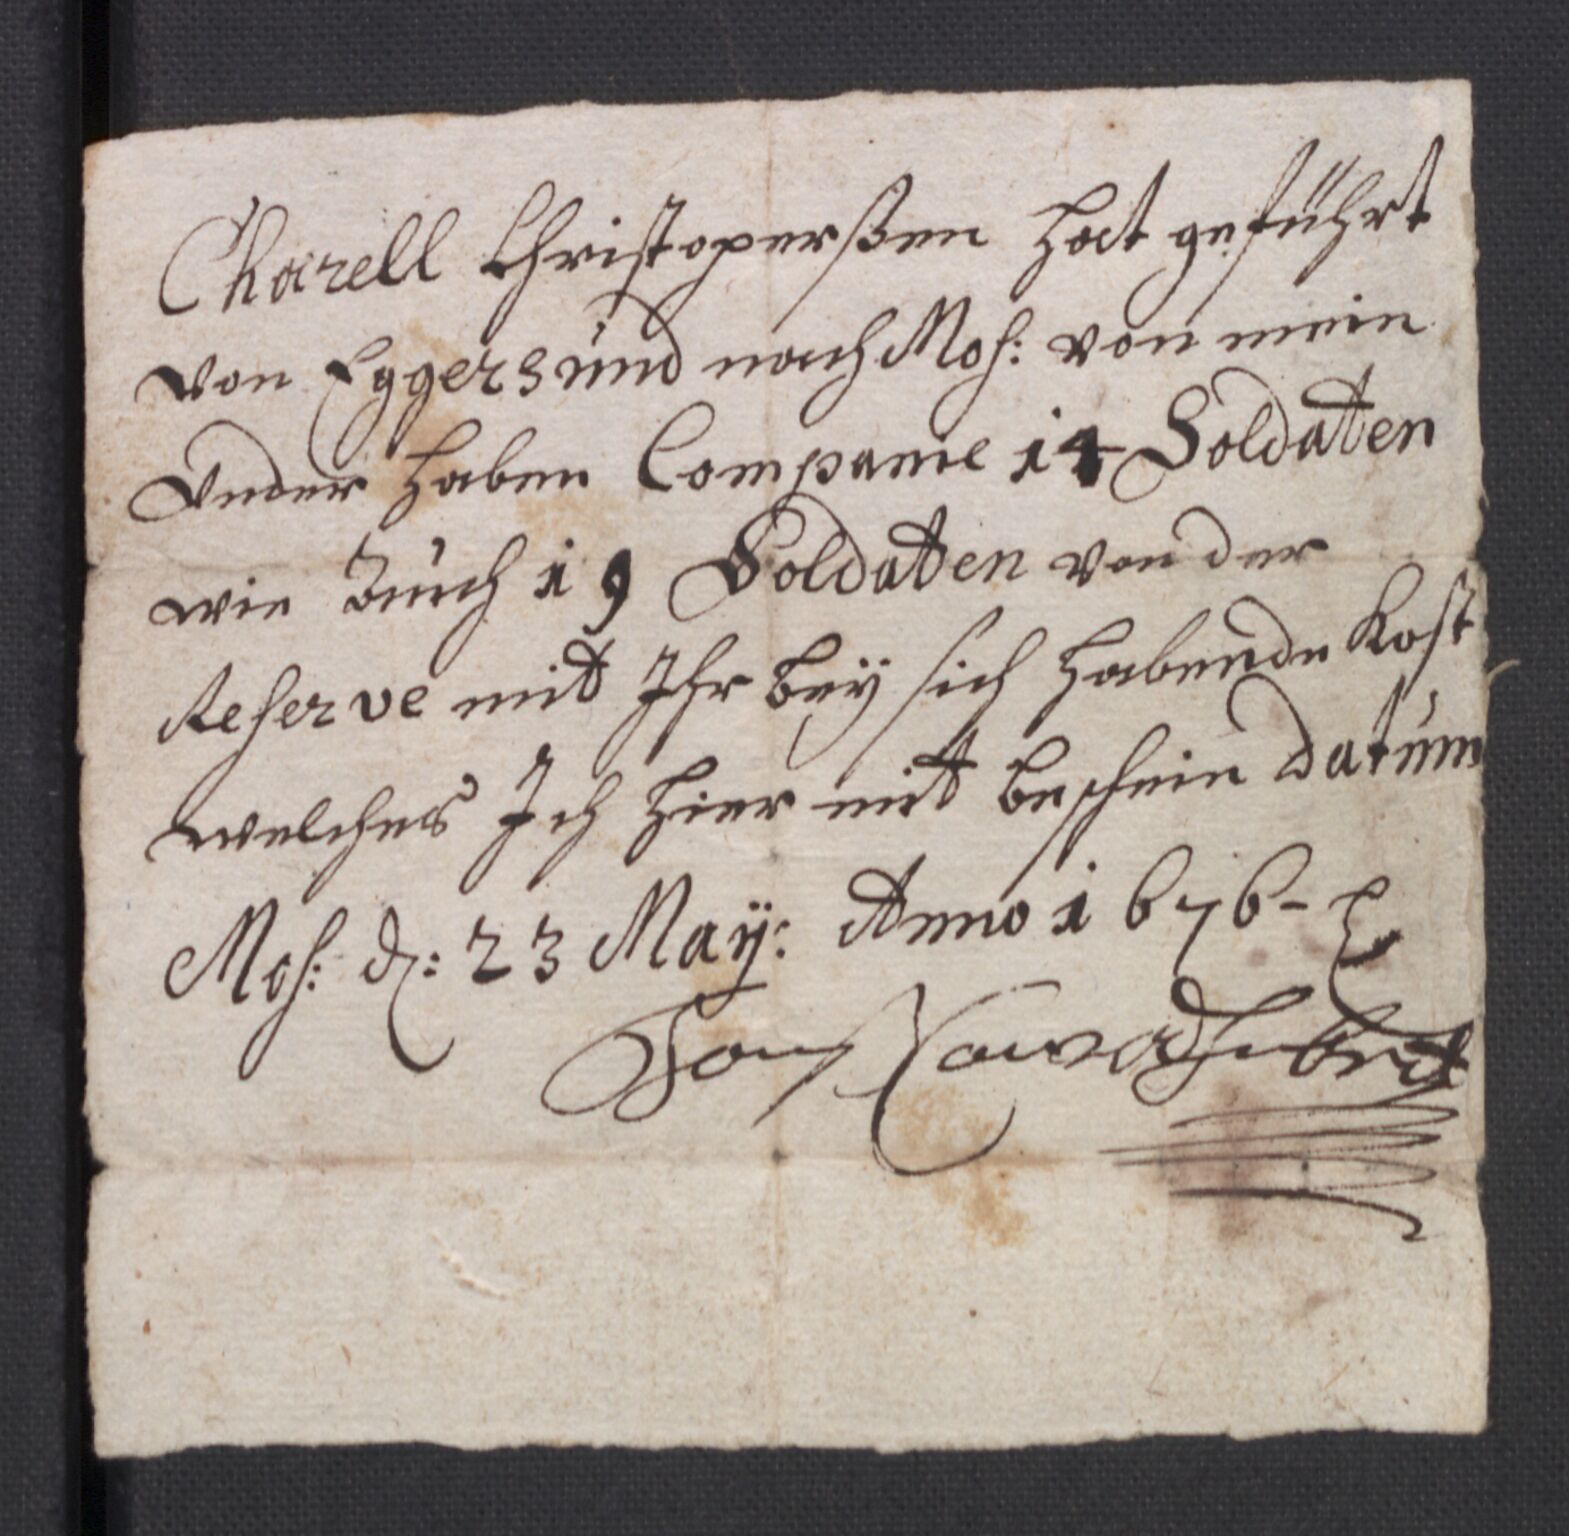 Charell Christoperßen hat geführt
von Eggersund nach Mos: von mein
Under haben Companie 14 Soldaten
wie auch 19 Soldaten von der
Reserve mit Ihr bey sich habende Kost
welches Ich hier mit beschein Datum
Mos: d: 23 May: Anno 1676